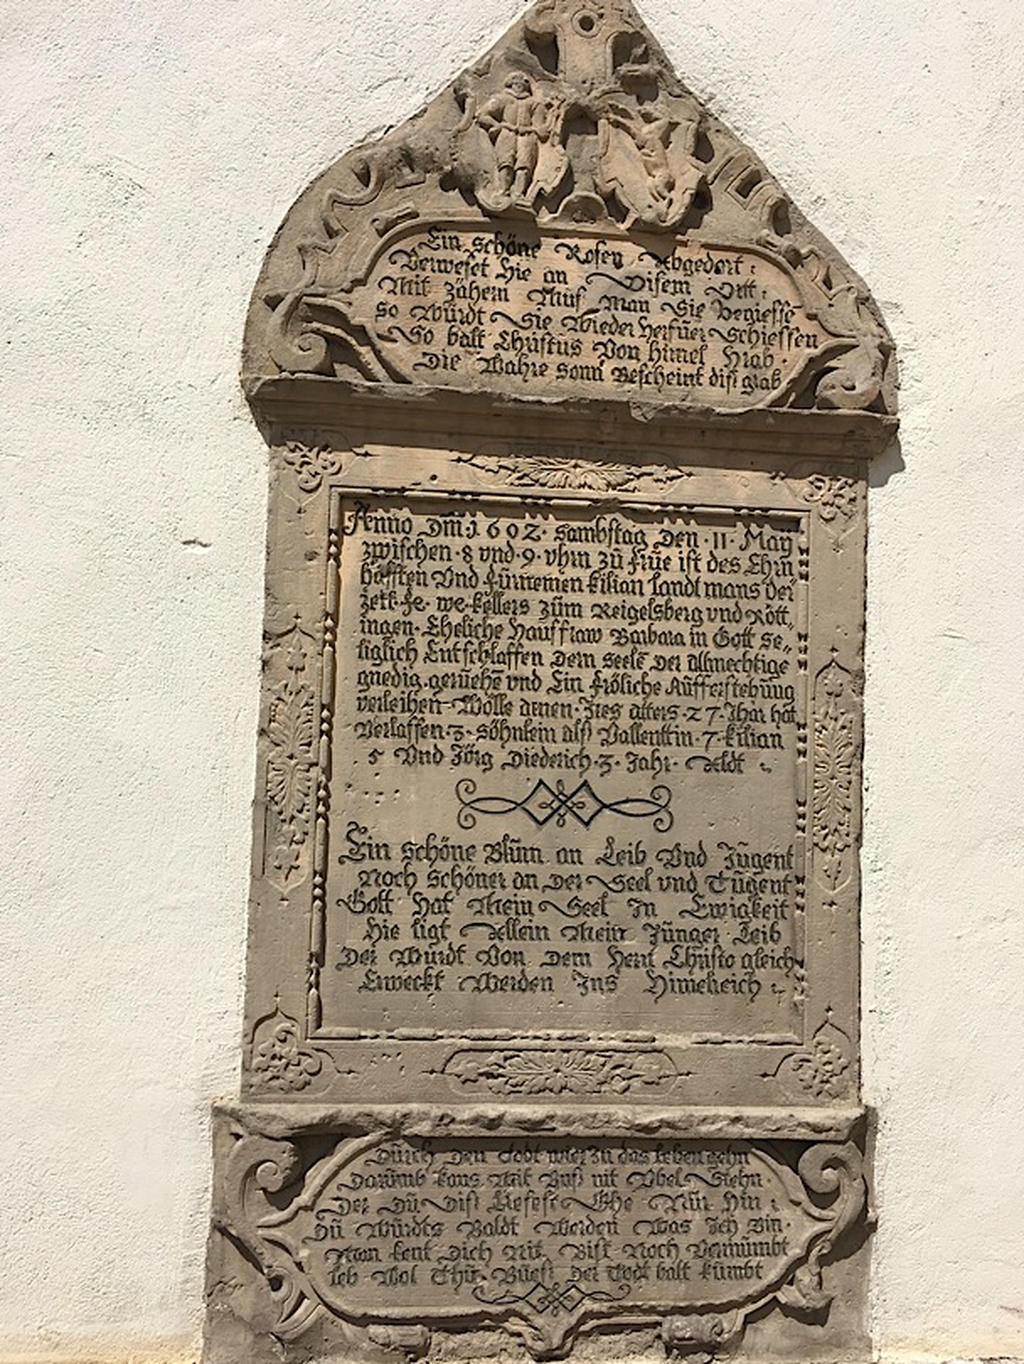 Ein schöne Rosen Abgedort :
Verweset hie an Disem Ort :
Mit zähern Muß man Sie Begiesse
So Würdt Sie Wieder Herfüer Schiessen
So balt Christus Von himel Hrab
Die Wahre sonn Bescheint diß grab
Anno Dm̄ 1602. Sambstag Den 11 May
zwischen 8 vnd 9 vhrn zū Frūe ist des Ehrn
hafften Vnd fürnemen Kilian Landtmans der
zeit fe. we. Kellers zūm Reigelsberg vnd Rött„
ingen Eheliche Haussfraw Barbara in Gott se„
liglich Entschlaffen Dem seelē Der Allmechtige
gnedig gerūehē vnd Ein fröliche Aufferstehūng
verleihen Wölle Amen Ires alters 27 Ihar hat
Verlaffen 3 söhnlein alß Vallenttin 7 Kilian
5 Vnd Jörg Diederich 3 Jahr Aldt
Ein schöne Blūm an Leib Vnd Jugent
Noch schöner an Der Seel vnd Tūgent
Gott Hat Mein Seel In Ewigkeit
Hie ligt Allein Mein Jūnger Leib
Der Würdt Von Dem Herrn Christo gleich
Erweckt Werden Ins Himelreich :
Dūrch Den Todt wier zū das leben gehn
Darūmb kans Mit Buß nit Vbel Stehn
Der Dū Diß Liesest Ehe Nūn Hin :
Dū Würdts Baldt Werden Was Ich Bin
Man kent Dich Nit Bist Noch Vermūmbt
leb Wol Thū Būeß Der Todt balt kūmbt